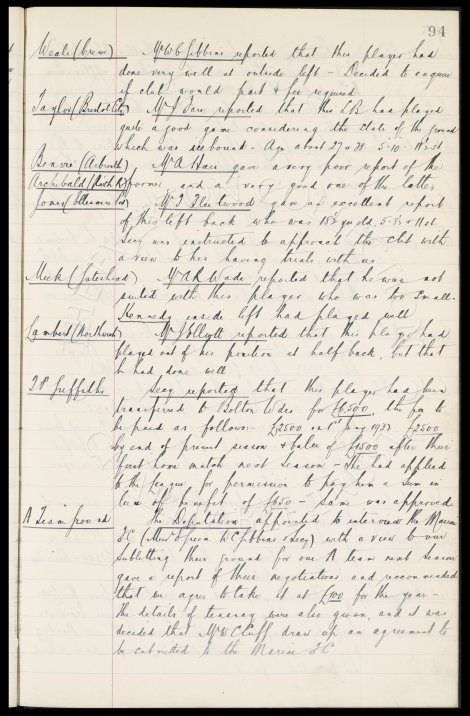 94
Weale (Crewe) Mr W C Gibbins reported that this player had
done very well at outside left – Decided to enquire
if club would part & fee required
Taylor (Bristol City) Mr J Fare reported that this LB had played
quite a good game considering the state of the ground
which was icebound. Age about 27 or 28 5-10
Mr A Hare gave a very poor report of the
Archibald (Raith R) former and a very good one of the latter
Jones (Ellesmere Port) Mr J Fleetwood gave an excellent report
of this left back who was 18½ yrs old, 5-8½ & 11 st.
Secy was instructed to approach the club with
a view to his having trials with us
Meek (Gateshead) Mr A R Wade reported that he was not
suited with this player who was too small.
Kennedy inside left had played well
Lambert (Northwich) Mr reported that this player had
played out of his position at half back, but that
he had done well
Griffiths Secy reported that this player had been
transferred to Bolton Wdrs for £6500 the fee to
be paid as follows:- £2500 on 1st May 1933 £2500
by end of present season & balce of £1500 after their
first home match next season – He had applied
to the League for permission to pay him a sum in
lieu of benefit of £650 – Same was approved.
A Team ground The Deputation appointed to interview the Marine
F.C (Messrs Green W C Gibbins & Secy) with a view to our
subletting their ground for our A team next season
gave a report of their negotiations and recommended
that we agree to take it at £100 for the year –
the details of tenancy were also given, and it was
decided that Mr W C Cuff draw up an agreement to
be submitted to the Marine F.C